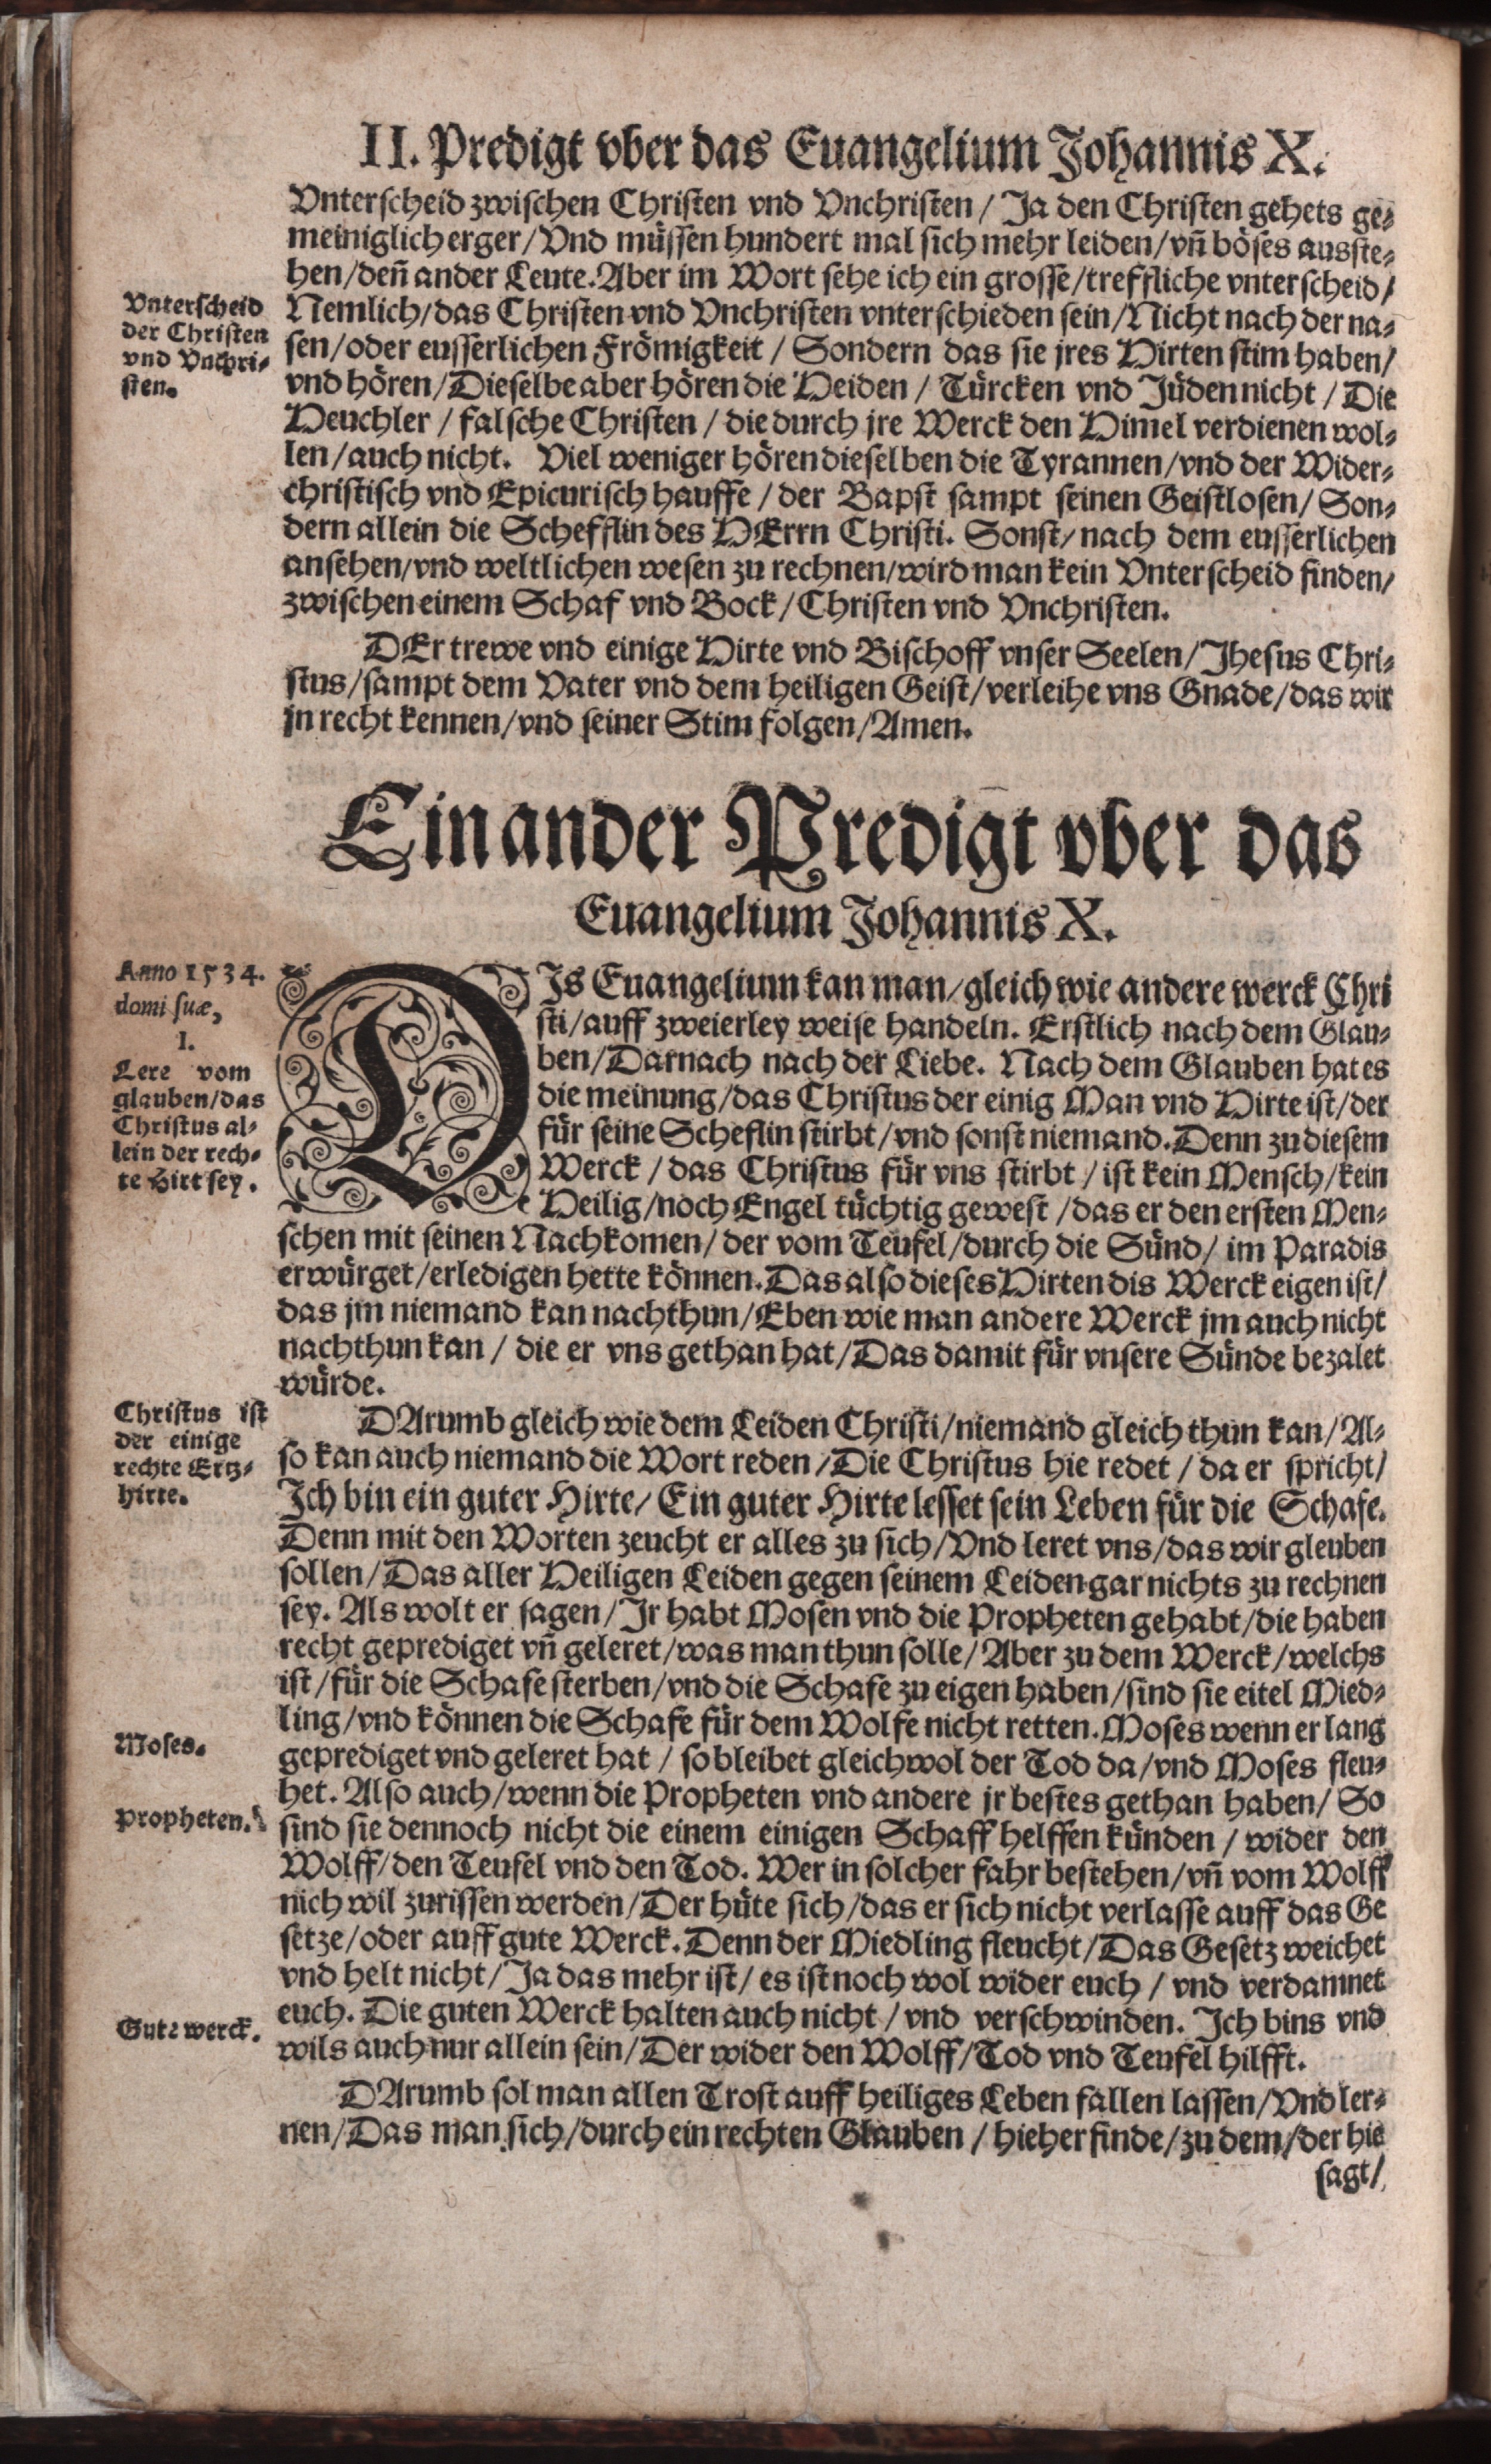 II. Predigt vber das Euangelium Johannis X.
Vnterscheid zwischen Christen vnd Vnchristen / Ja den Christen gehets ge-
meiniglich erger / Vnd müssen hundert mal sich mehr leiden / vñ böses ausste-
hen / deñ ander Leute. Aber im Wort sehe ich ein grosse / treffliche vnterscheid /
Nemlich / das Christen vnd Vnchristen vnterschieden sein / Nicht nach der na-
sen / oder eusserlichen Frömigkeit / Sondern das sie jres Hirten stim haben /
vnd hören / Dieselbe aber hören die Heiden / Türcken vnd Jüden nicht / Die
Heuchler / falsche Christen / die durch jre Werck den Himel verdienen wol-
len / auch nicht. Viel weniger hören dieselben die Tyrannen / vnd der Wider-
christisch vnd Epicurisch hauffe / der Bapst sampt seinen Geistlosen / Son-
dern allein die Schefflin des HErrn Christi. Sonst / nach dem eusserlichen
ansehen / vnd weltlichen wesen zu rechnen / wird man kein Vnterscheid finden /
zwischen einem Schaf vnd Bock / Christen vnd Vnchristen.
Vnterscheid
der Christen
vnd Vnchri-
sten.
DEr trewe vnd einige Hirte vnd Bischoff vnser Seelen / Jhesus Chri-
stus / sampt dem Vater vnd dem heiligen Geist / verleihe vns Gnade / das wir
jn recht kennen / vnd seiner Stim folgen / Amen.
Ein ander Predigt vber das
Euangelium Johannis X.
Anno 1534.
domi suæ,
I.
Lere vom
glauben / das
Christus al-
lein der rech-
te Hirt sey.
DIs Euangelium kan man / gleich wie andere werck Chri
sti / auff zweierley weise handeln. Erstlich nach dem Glau-
ben / Darnach nach der Liebe. Nach dem Glauben hat es
die meinung / das Christus der einig Man vnd Hirte ist / der
für seine Scheflin stirbt / vnd sonst niemand. Denn zu diesem
Werck / das Christus für vns stirbt / ist kein Mensch / kein
Heilig / noch Engel tüchtig gewest / das er den ersten Men-
schen mit seinen Nachkomen / der vom Teufel / durch die Sünd / im Paradis
erwürget / erledigen hette können. Das also dieses Hirten dis Werck eigen ist /
das jm niemand kan nachthun / Eben wie man andere Werck jm auch nicht
nachthun kan / die er vns gethan hat / Das damit für vnsere Sünde bezalet
würde.
Christus ist
der einige
rechte Ertz-
hirte.
DArumb gleich wie dem Leiden Christi / niemand gleich thun kan / Al-
so kan auch niemand die Wort reden / Die Christus hie redet / da er spricht /
Ich bin ein guter Hirte / Ein guter Hirte lesset sein Leben für die Schafe.
Denn mit den Worten zeucht er alles zu sich / Vnd leret vns / das wir gleuben
sollen / Das aller Heiligen Leiden gegen seinem Leiden gar nichts zu rechnen
sey. Als wolt er sagen / Jr habt Mosen vnd die Propheten gehabt / die haben
recht geprediget vñ geleret / was man thun solle / Aber zu dem Werck / welchs
ist / für die Schafe sterben / vnd die Schafe zu eigen haben / sind sie eitel Mied-
ling / vnd können die Schafe für dem Wolfe nicht retten. Moses wenn er lang
geprediget vnd geleret hat / so bleibet gleichwol der Tod da / vnd Moses fleu-
het. Also auch / wenn die Propheten vnd andere jr bestes gethan haben / So
sind sie dennoch nicht die einem einigen Schaff helffen künden / wider den
Wolff / den Teufel vnd den Tod. Wer in solcher fahr bestehen / vñ vom Wolff
nich wil zurissen werden / Der hüte sich / das er sich nicht verlasse auff das Ge
setze / oder auff gute Werck. Denn der Miedling fleucht / Das Gesetz weichet
vnd helt nicht / Ja das mehr ist / es ist noch wol wider euch / vnd verdamnet
euch. Die guten Werck halten auch nicht / vnd verschwinden. Ich bins vnd
wils auch nur allein sein / Der wider den Wolff / Tod vnd Teufel hilfft.
Moses.
Propheten.
Gute werck.
DArumb sol man allen Trost auff heiliges Leben fallen lassen / Vnd ler-
nen / Das man sich / durch ein rechten Glauben / hieher finde / zu dem / der hie
sagt /